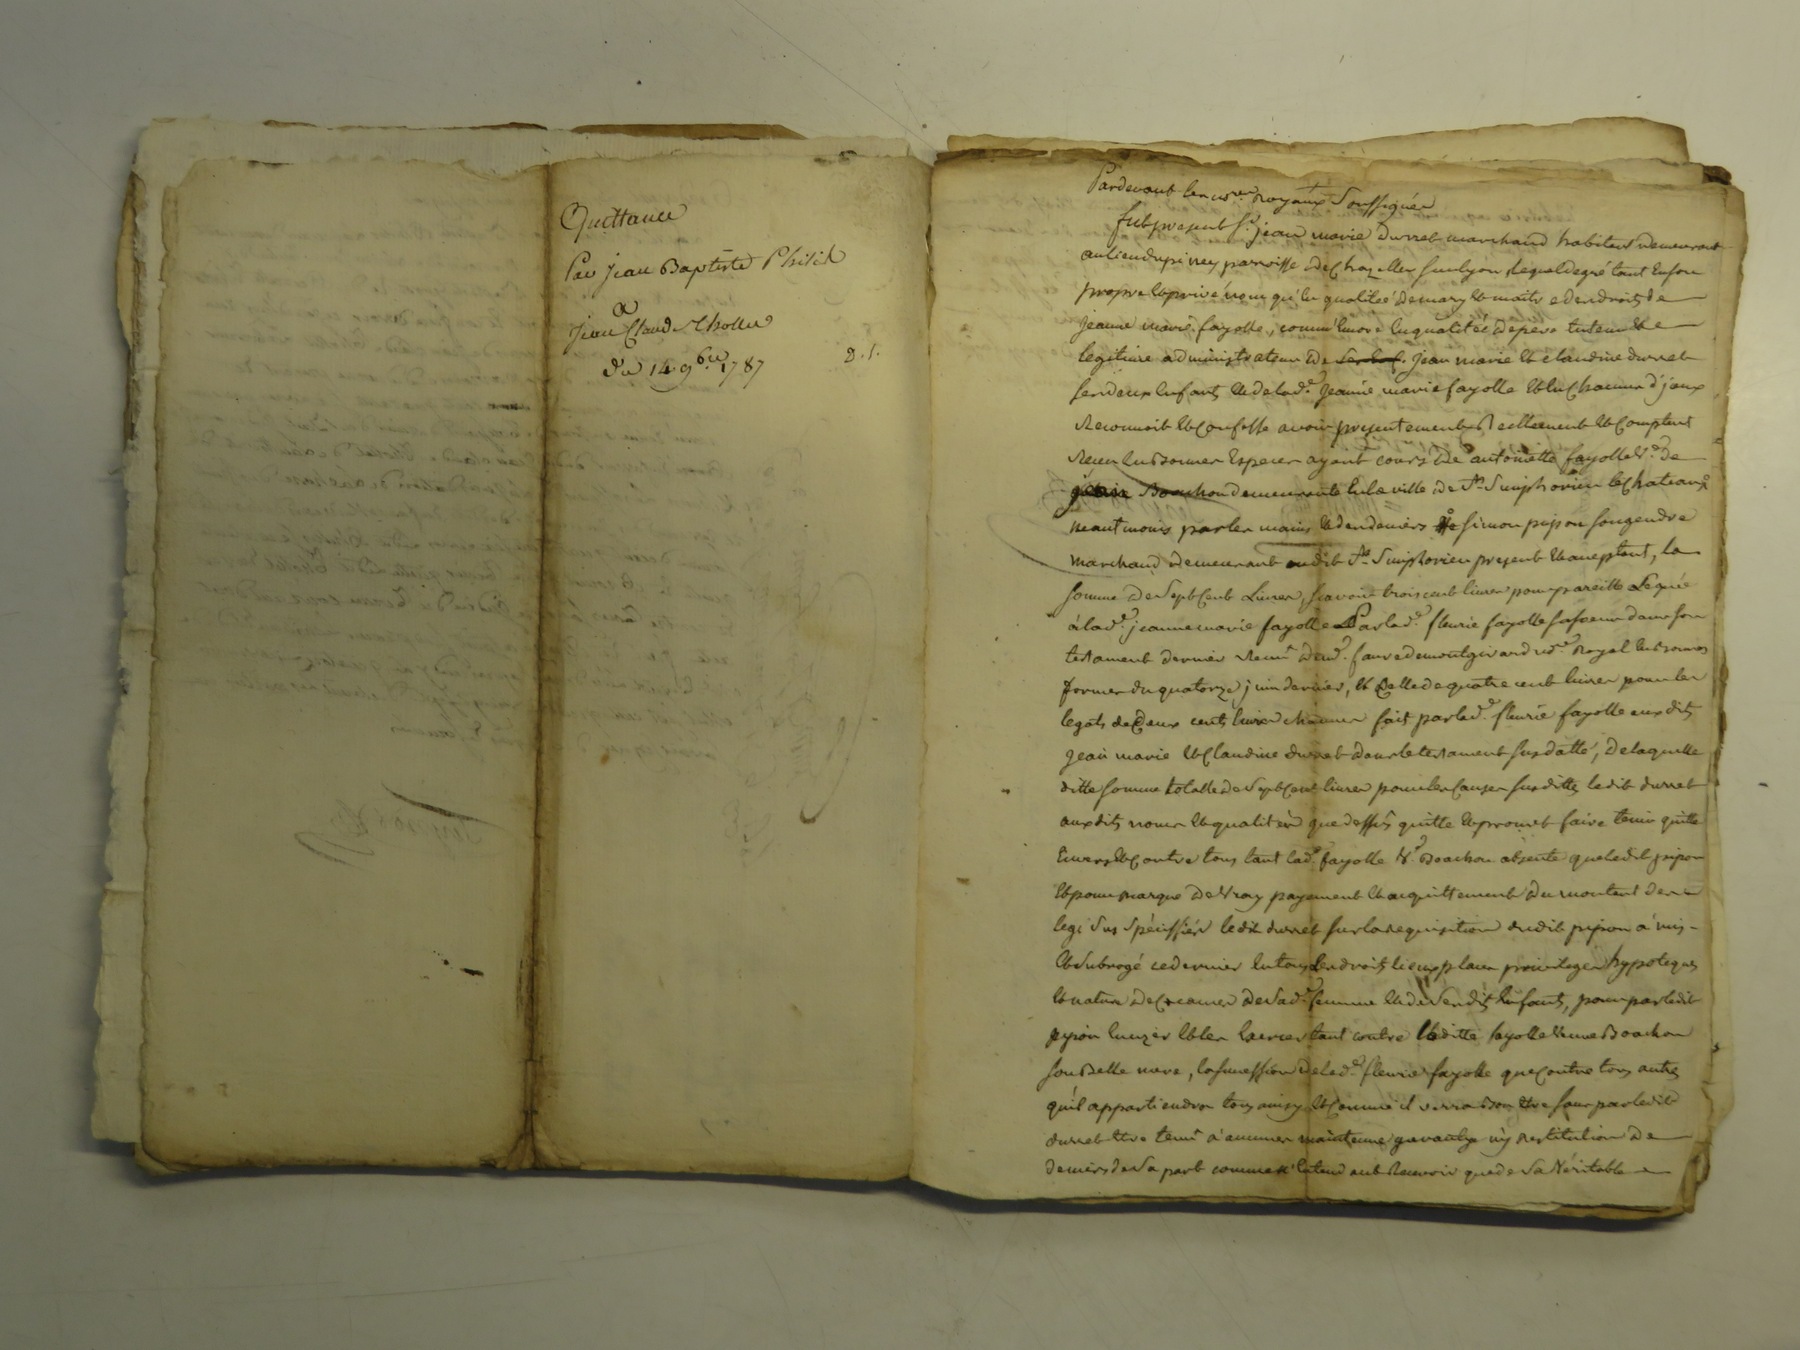 Quittance
Par jean Baptiste Philip
a
jean Claude Thollet
du 14 9bre 1787
Pardevant les nres Royaux Soussignés
fut present Sr jean marie durret marchand habitant demeurant
au lieu du pinay parroisse de Chazelles sur lyon lequel de gré tant en son
propre et privé nom qu'en qualité de mary et maitre des droits de
jeanne marie fayolle, comm'encore en qualité de pere tuteur et
legitime administrateur de jean marie et claudine durret
ses deux enfants et de lade jeanne marie fayolle et en chacun d'jceux
Reconnoit et Confesse avoir presentement Reellement et Comptant
Receu en Bonnes Especes ayant cours de antoinette fayolle ve de
jean Boachon demeurante en la ville de St Simphorien le Chateau
neantmoins par les mains et des deniers de simon pipon son gendre
marchand demeurant audit St Simphorien present et acceptant, la
somme de Sept Cent Livres, scavoir trois cent livres pour pareille Leguée
à lade jeanne marie fayolle Par lade fleurie fayolle sa soeur dans son
testament dernier Receu de me faure de montgirard nre Royal en bonnes
formes du quatorze juin dernier, et Celle de quatre cent livres pour les
legats de Deux cents livres chacun fait par lade fleurie fayolle aux dits
jean marie et Claudine durret dans le testament sus datté, de laquelle
ditte somme totalle de Sept Cent livres pour les Causes susdittes ledit durret
aux dits noms et qualités que dessus quitte et promet faire tenir quitte
Envers et Contre tous tant lade fayolle ve Boachon absente que ledit pipon
et pour marque de Vray payement et acquittement du montant des
legs Sus Spéciffiés ledit durret sur la requisition dudit pipon a mis
et Subrogé ce dernier en tous les droits lieux places privileges hypoteques
et nature de Creances de Sade femme et de Ses dits Enfants, pour par ledit
pipon en uzer et les Exercer tant contre laditte fayolle veuve Boachon
sa Belle mere, la succession de lade fleurie fayolle que Contre tous autres
qu'il appartiendra tout ainsy et Comme il verra Bon etre sans par ledit
durret etre tenu a aucunes maintenue garantie ny Restitution de
deniers de Sa part comme n'entendant Recevoir que de Sa Véritable